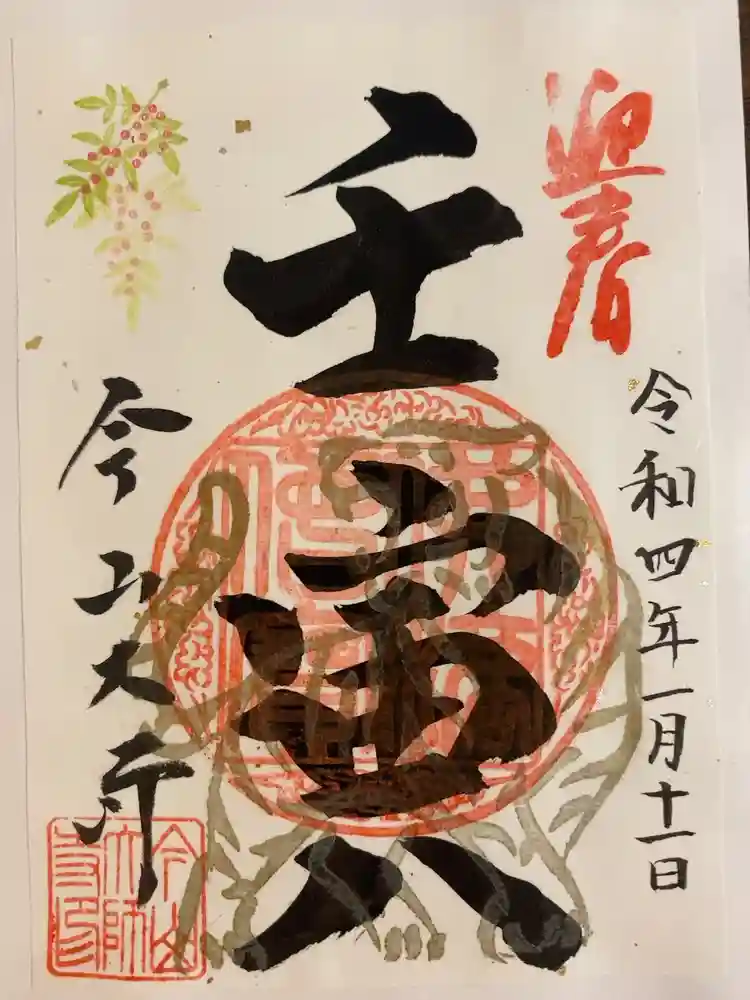 迎春
令和四年一月十一日
壬寅
今山大師
今山
大師
寺印